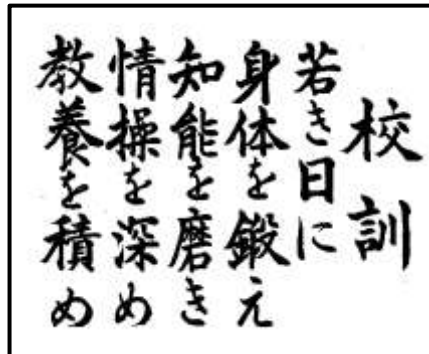 校訓
若き日に
身体を鍛え
知能を磨き
情操を深め
教養を積め